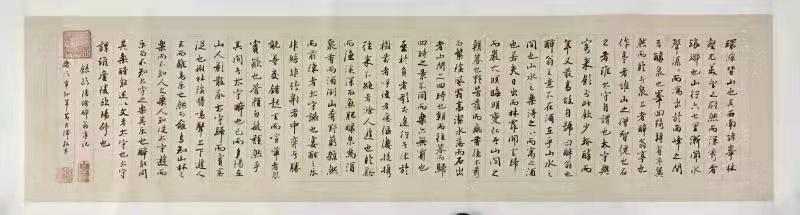 環滁皆山也其西南諸峯林
壑尤美望之蔚然而深秀者
琅琊也山行六七里漸聞水
聲潺潺而瀉出於兩峰之間
者釀泉也峯回路轉有亭翼
然而臨於泉上者醉翁亭也
作亭者誰山之僧智僊也名
之者誰太守自謂也太守與
客來飲于此飲少輒醉而
年又最高故自號曰醉翁也
醉翁之意不在酒在乎山水之
間也山水之樂得之心而寓之酒
也若夫日出而林霏開雲歸
而巖穴暝晦明變化者山間之
朝暮也野芳發而幽香佳木秀
而繁陰風霜高潔水落而石出
者山間之四時也朝而往暮而歸
四時之景不同而樂亦無窮也
至於負者歌于途行者休於
樹前者呼後者應傴僂提攜
往來而不絕者滁人遊也臨谿
而漁谿深而魚肥釀泉為酒
泉香而酒洌山肴野蔌雜然
而前陳者太守宴也宴酣之樂
非絲非竹射者中弈者勝
觥籌交錯起坐而喧譁者衆
賓歡也蒼顏白髮頹然乎
其間者太守醉也已而夕陽在
山人影散亂太守歸而賓客
從也樹林陰翳鳴聲上下遊人
去而禽鳥樂也然而禽鳥知山林之
樂而不知人之樂人知從太守遊而
樂而不知太守之樂其樂也醉能同
其樂醒能述以文者太守也太守
謂誰廬陵歐陽修也
錄歐陽修醉翁亭記